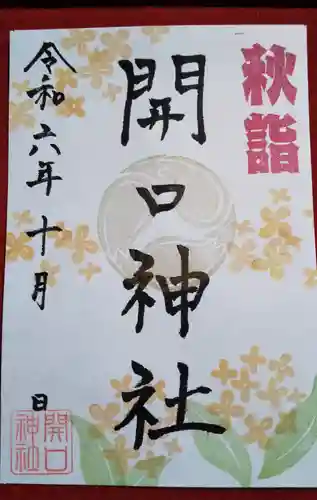 秋詣
開口神社
令和六年十月
日
開口
神社